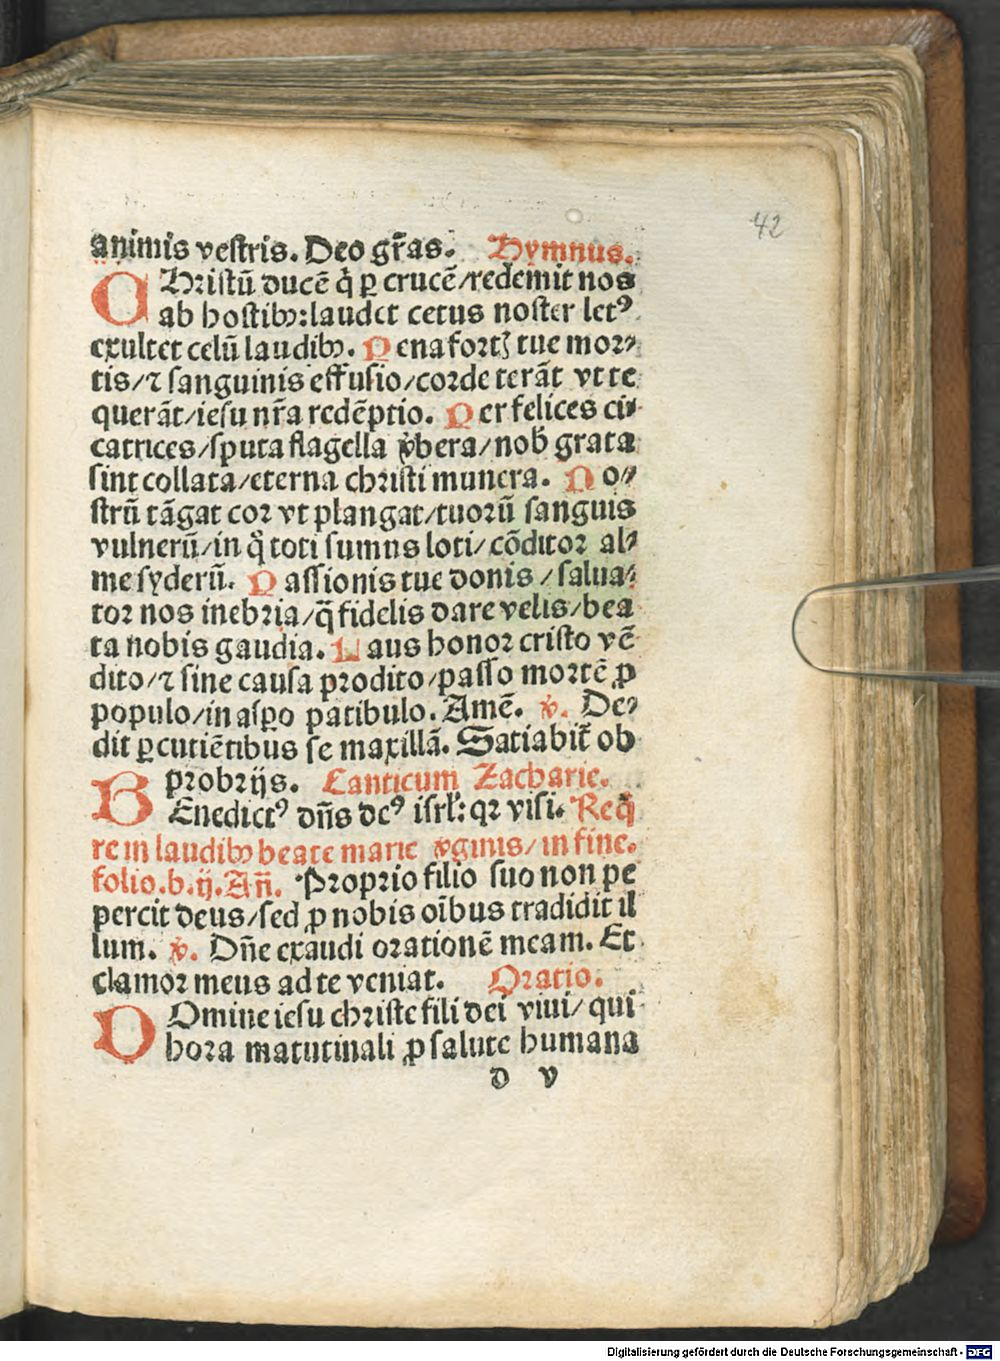 42
animis vestris. Deo gr̃as. Hymnus.
CHristū ducē q̇ ꝑ crucē/redemit nos
ab hostibꝰ:laudet cetus noster letꝰ
exultet celū laudibꝰ. Penafortꝭ tue mor⸗
tis/⁊ sanguinis effusio/corde terāt vt te
querāt/iesu nr̃a redēptio. Per felices ci⸗
catrices/sputa flagella v̾bera/nob̾ grata
sint collata/eterna christi munera. No⸗
strū tāgat cor vt plangat/tuorū sanguis
vulnerū/in q̇ toti sumus loti/cōditor al⸗
me syderū. Passionis tue donis/salua⸗
tor nos inebria/q̄ fidelis dare velis/bea
ta nobis gaudia. Laus honor cristo vē
dito/⁊ sine causa prodito/passo mortē ꝓ
populo/in asꝑo patibulo. Amē. ℣. De⸗
dit ꝑcutiētibus se maxillā. Satiabit̃ ob
probrijs. Canticum Zacharie.
BEnedictꝰ dñs deꝰ isrl̃: qꝛ visi. Req̇
re in laudibꝰ beate marie v̾ginis/in fine.
folio.b.ij.Añ. Proprio filio suo non pe
percit deus/sed ꝓ nobis oībus tradidit il
lum. ℣. Dñe exaudi orationē meam. Et
clamor meus ad te veniat. Oratio.
DOmine iesu christe fili dei viui/qui
hora matutinali ꝓ salute humana
d v
Digitalisierung gefördert durch die Deutsche Forschungsgemeinschaft - DFG